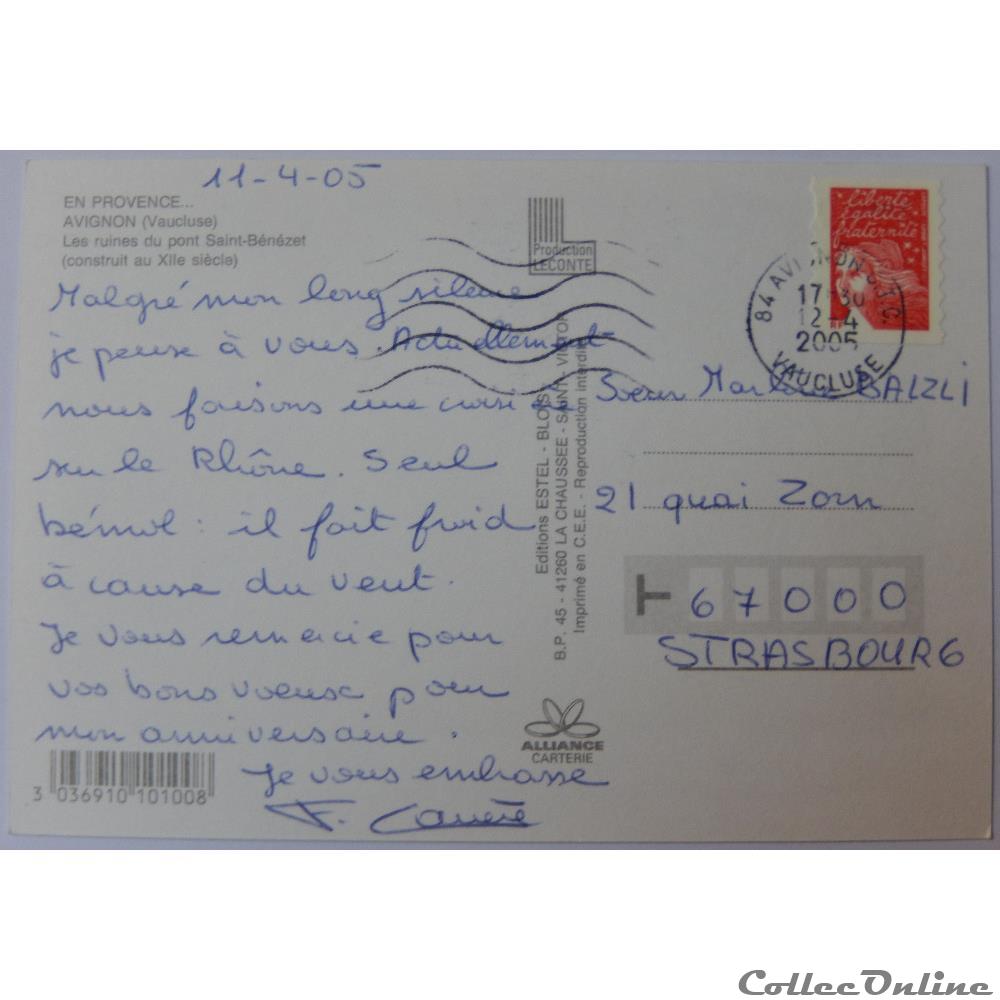 11-4-05
EN PROVENCE...
AVIGNON (Vaucluse)
Les ruines du pont Saint-Bénézet
(construit au XIIe siècle)
Malgré mon long silence
je pense à vous. Actuellement
nous faisons une croisière
sur le Rhône. Seul
bémol : il fait froid
à cause du vent.
Je vous remercie pour
vos bons voeux pour
mon anniversaire.
Je vous embrasse
F.
3 036910 101008
Production
LECONTE
Editions ESTEL - BLOIS
B.P. 45 - 41260 LA CHAUSSEE - SAINT - VICTOR
Imprimé en C.E.E. - Reproduction interdite
ALLIANCE
CARTERIE
liberté
égalité
fraternité
RF
84 AVIGNON C.T.C.
17-30
12-4
2005
VAUCLUSE
Soeur BALZLI
21 quai Zorn
67000
STRASBOURG
CollecOnline